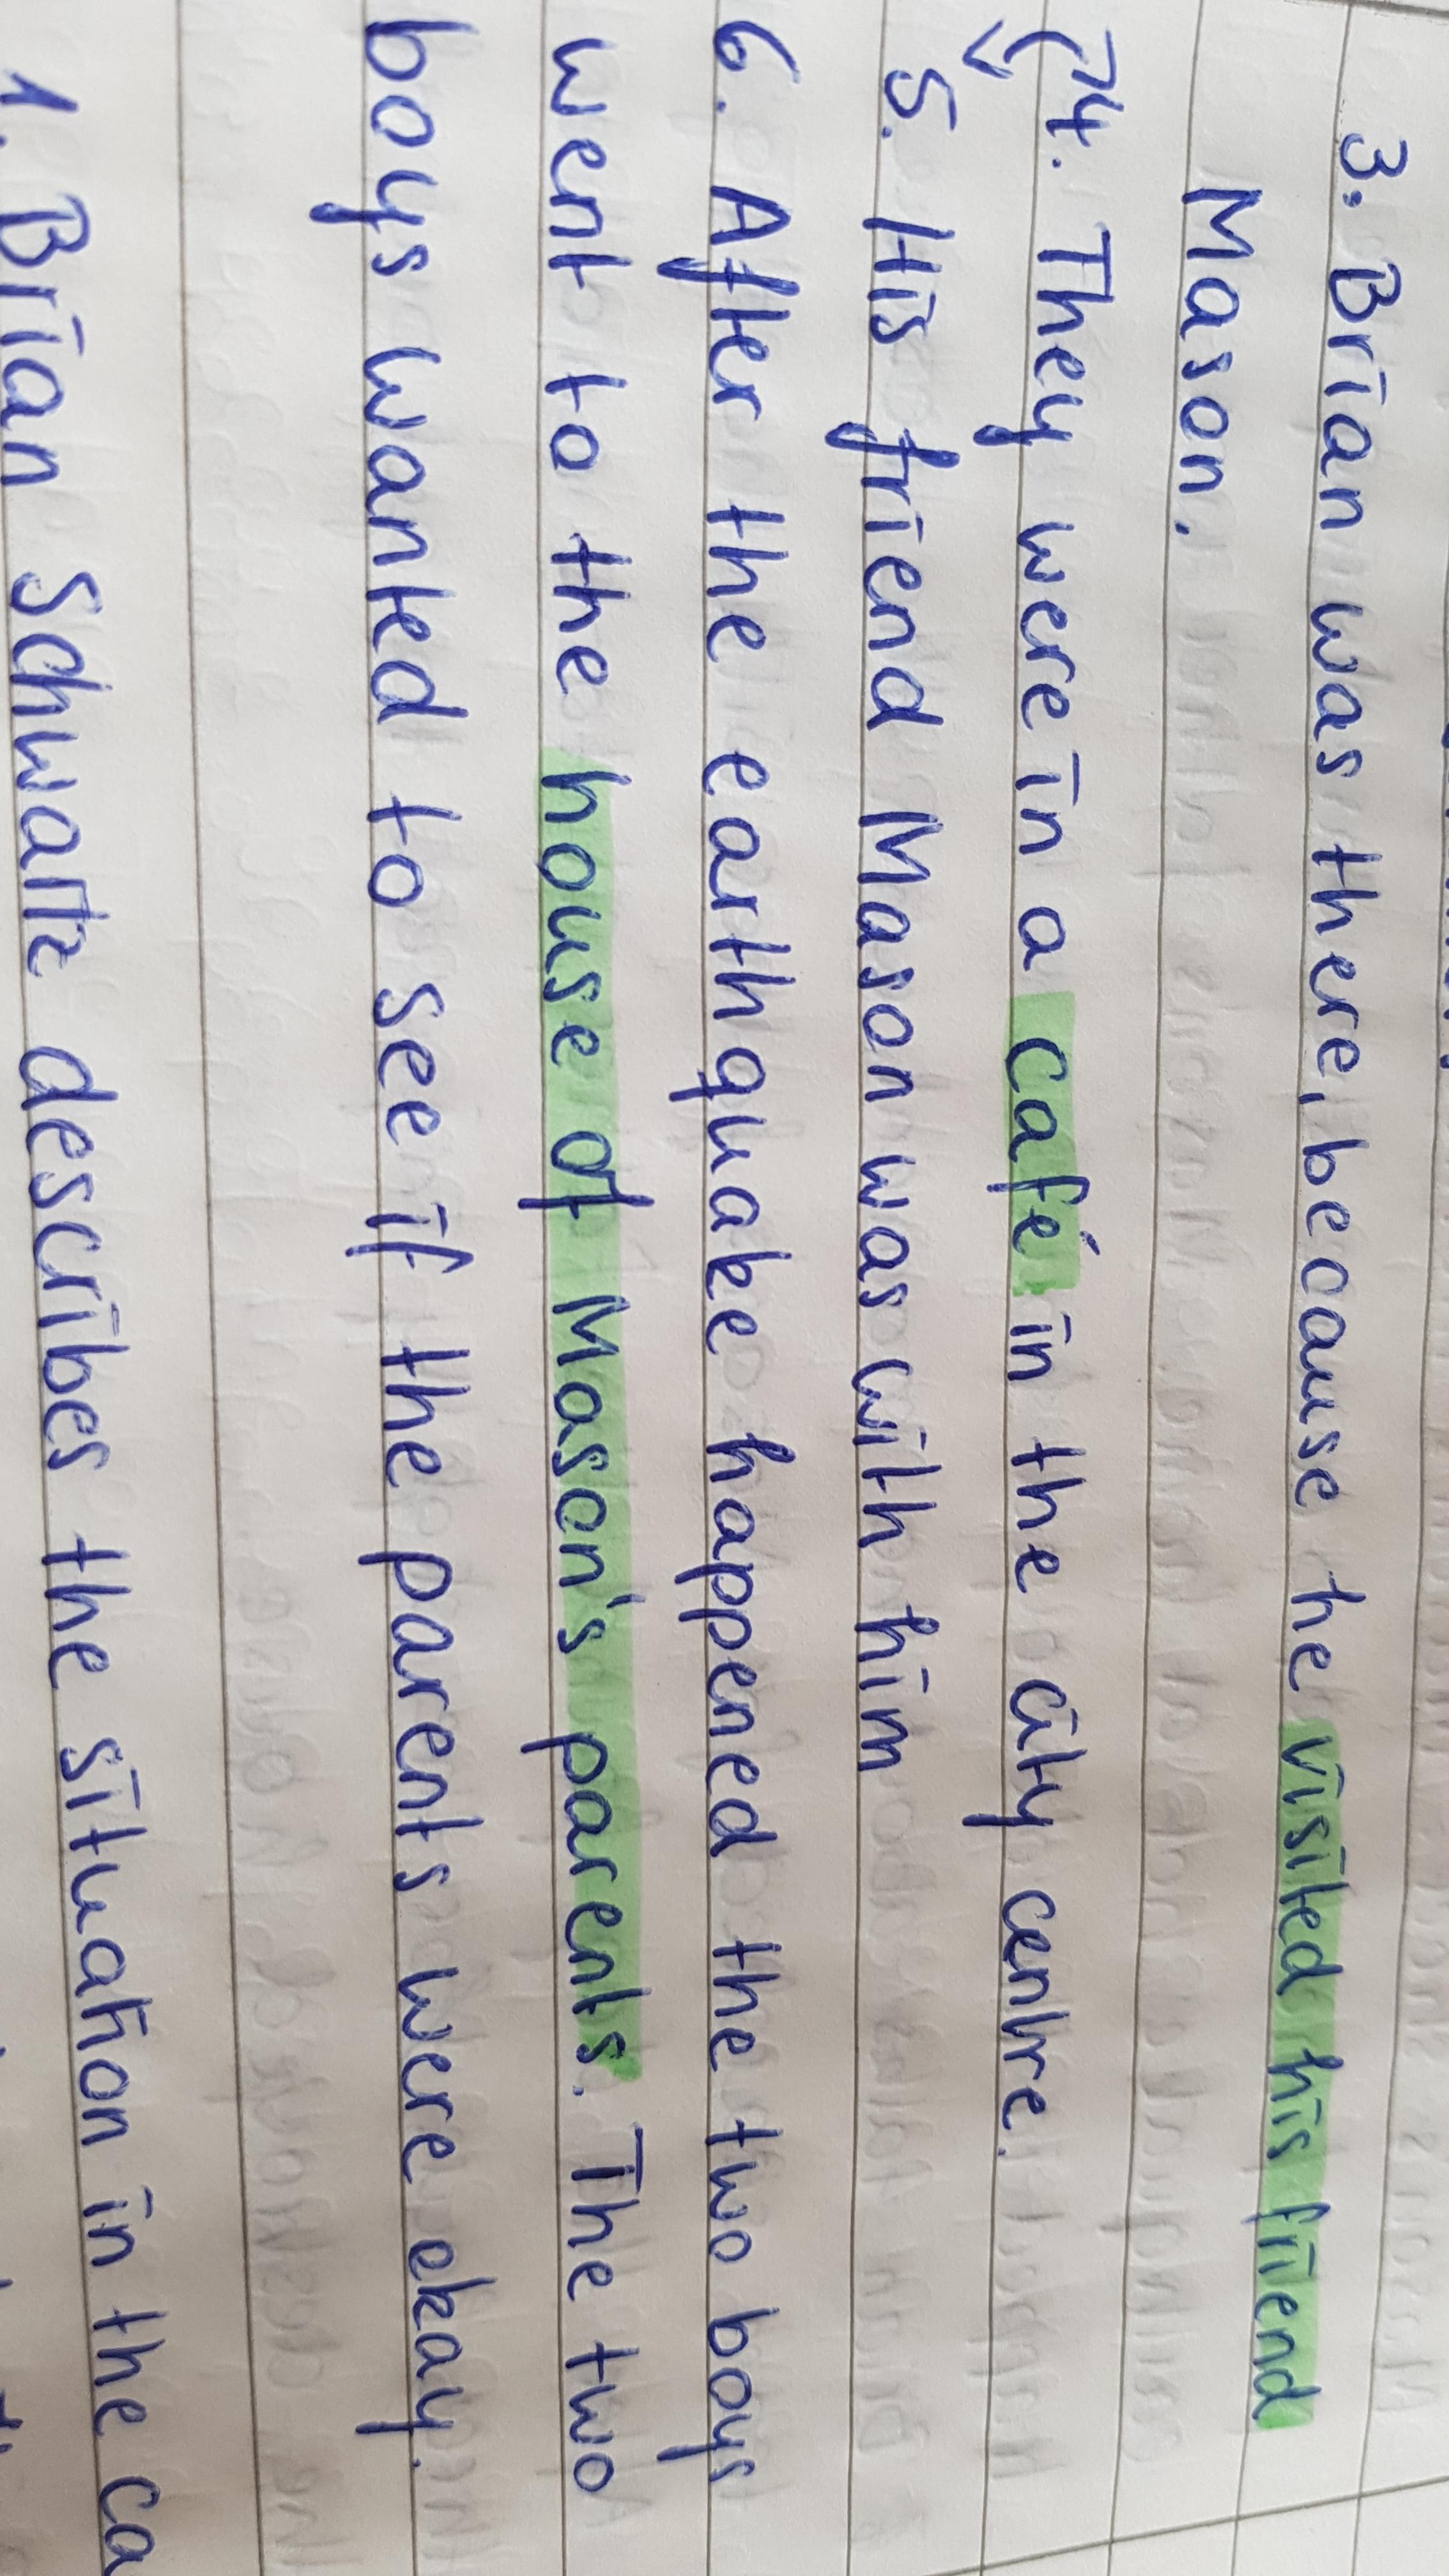 3. Brian was there, because he visited his friend
Mason.
4. They were in a café in the city centre.
5. His friend Mason was with him
6. After the earthquake happened the two boys
went to the house of Mason's parents. The two
boys wanted to see if the parents were okay.
1. Brian Schwartz describes the situation in the ca